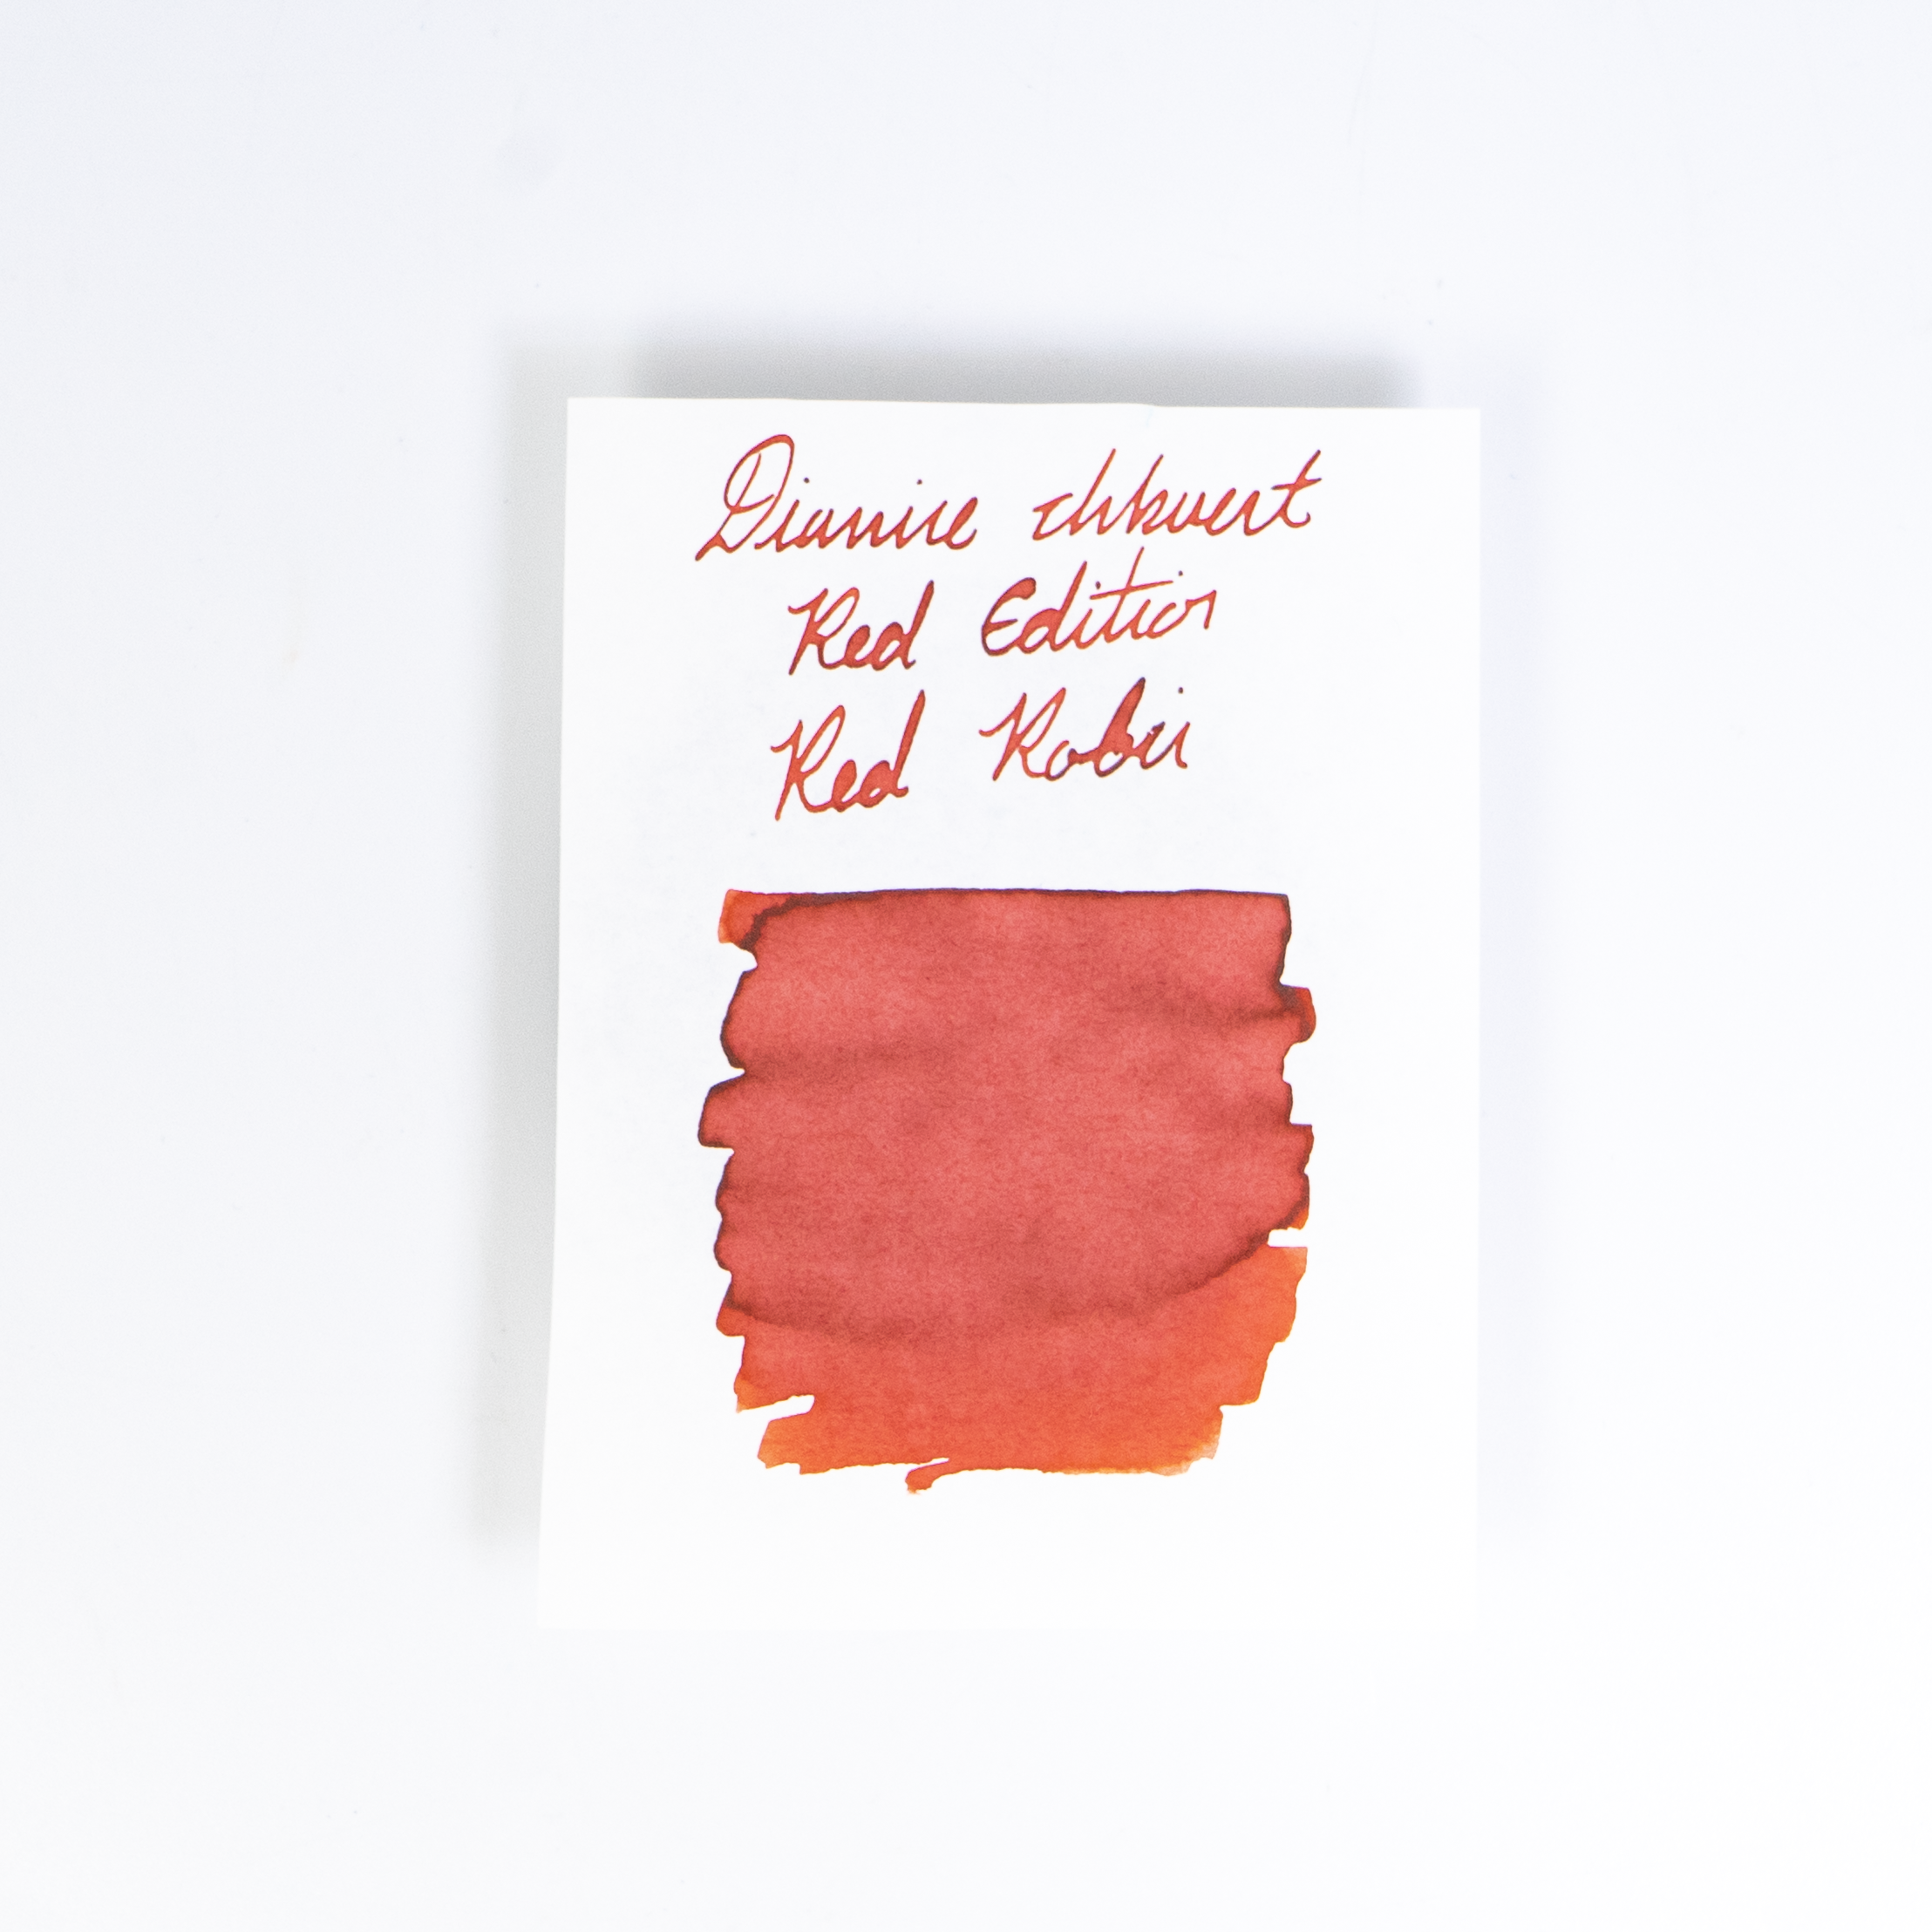 Diamine Inkvent
Red Edition
Red Robin